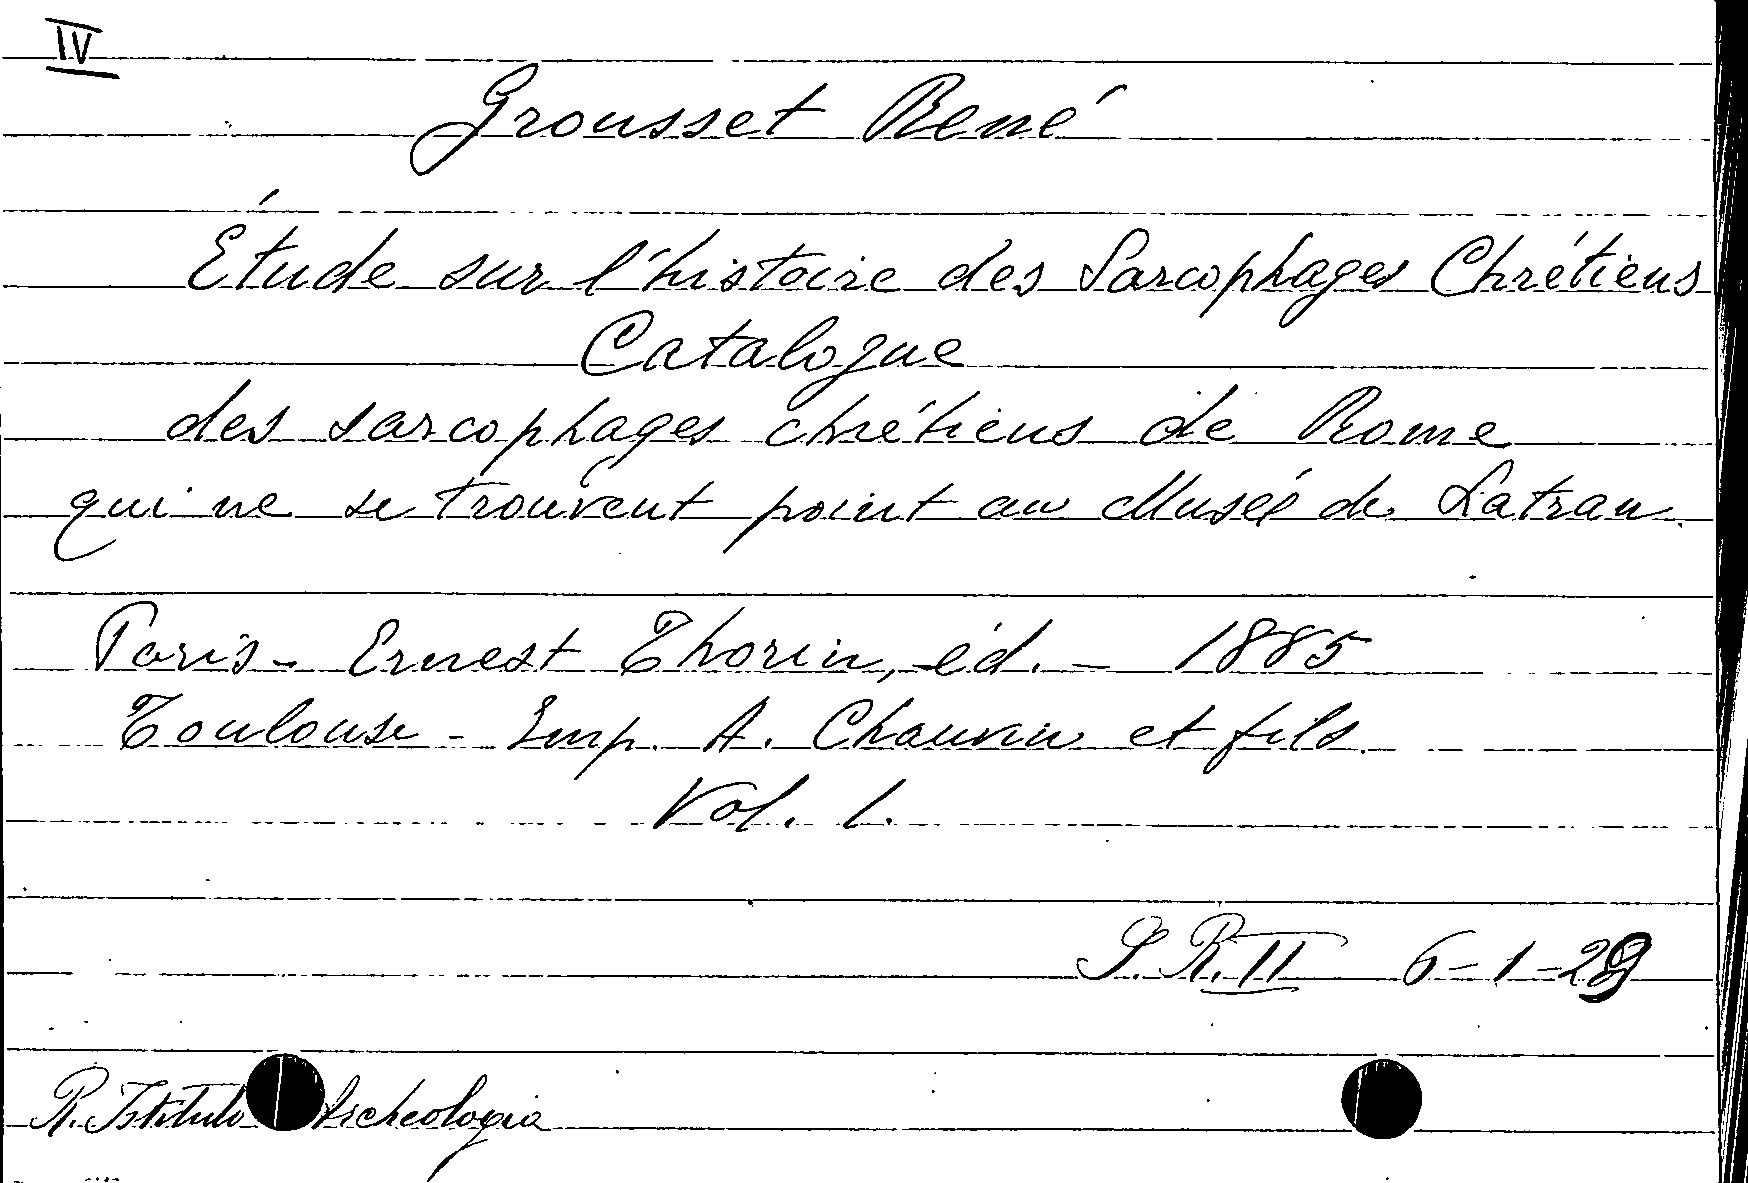 IV
Grousset René
Étude sur l'histoire des Sarcophages Chrétiens
Catalogue
des sarcophages chrétiens de Rome
qui ne se trouvent point au Musée de Latran.
Paris - Ernest Thorin, éd. - 1885
Toulouse - Imp. A. Chauvin et fils.
Vol. 1.
S. R. II 6-1-29
R. Istituto Archeologia